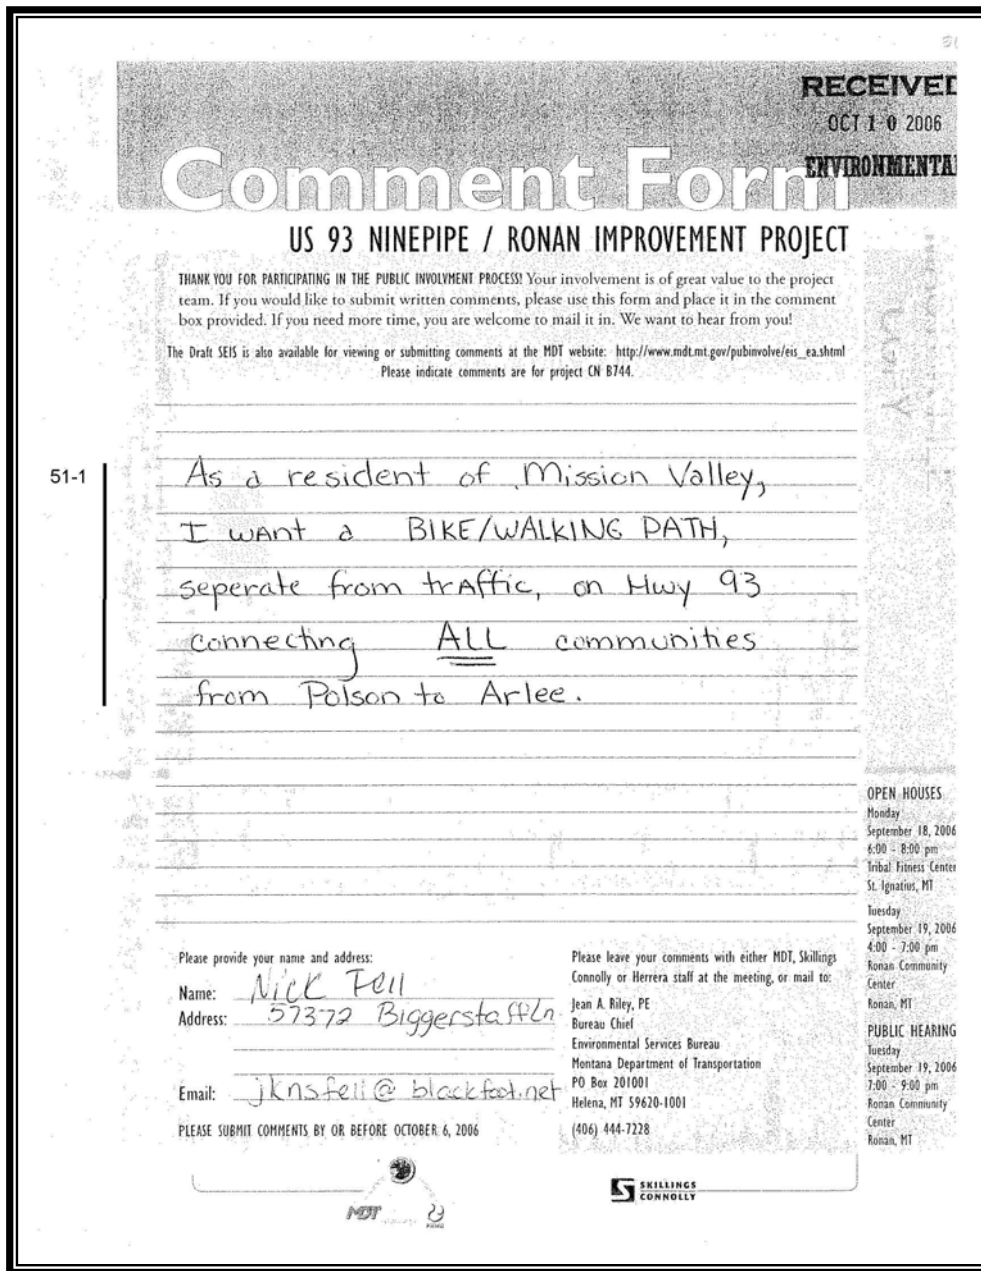 RECEIVED
OCT 10 2006
ENVIRONMENTA
Comment Form
US 93 NINEPIPE / RONAN IMPROVEMENT PROJECT
THANK YOU FOR PARTICIPATING IN THE PUBLIC INVOLVMENT PROCESS! Your involvement is of great value to the project
team. If you would like to submit written comments, please use this form and place it in the comment
box provided. If you need more time, you are welcome to mail it in. We want to hear from you!
The Draft SEIS is also available for viewing or submitting comments at the MDT website: http://www.mdt.mt.gov/pubinvolve/eis_ea.shtml
Please indicate comments are for project CN B744.
51-1
As a resident of Mission Valley,
I want a BIKE/WALKING PATH,
seperate from traffic, on Hwy 93
connecting ALL communities
from Polson to Arlee.
Please provide your name and address:
Name: Nick Fell
Address: 57372 Biggerstaff Ln
Email: jknsfell@blackfoot.net
PLEASE SUBMIT COMMENTS BY OR BEFORE OCTOBER 6, 2006
Please leave your comments with either MDT, Skillings
Connolly or Herrera staff at the meeting, or mail to:
Jean A. Riley, PE
Bureau Chief
Environmental Services Bureau
Montana Department of Transportation
PO Box 201001
Helena, MT 59620-1001
(406) 444-7228
OPEN HOUSES
Monday
September 18, 2006
6:00 - 8:00 pm
Tribal Fitness Center
St. Ignatius, MT
Tuesday
September 19, 2006
4:00 - 7:00 pm
Ronan Community
Center
Ronan, MT
PUBLIC HEARING
Tuesday
September 19, 2006
7:00 - 9:00 pm
Ronan Community
Center
Ronan, MT
MDT
SKILLINGS
CONNOLLY